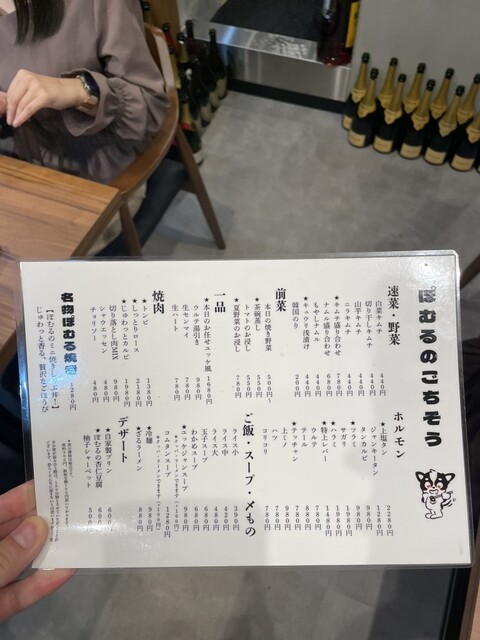 ぽむるのごちそう
速菜・野菜
白菜キムチ 440円
切り干しキムチ 440円
山芋キムチ 440円
ニラキムチ 440円
★キムチ盛り合わせ 780円
ナムル盛り合わせ 680円
もやしナムル 440円
★キュウリ浅漬け 440円
韓国のり 200円
前菜
★本日の焼き野菜 500円〜
★茶碗蒸し 550円
トマトのお浸し 550円
★夏野菜のお浸し 780円
一品
★本日のお任せユッケ風 1680円
ウルテ湯引き 980円
生センマイ 780円
生ハート 780円
焼肉
★トンビ 1380円
★しっとりロース 1380円
★じゅわっとカルビ
切り落とし肉MIX
シャウエッセン 480円
チョリソー 480円
名物ぽむる焼き
じゅわっと香る、贅沢なごほうび
1280円
ホルモン
★上塩タン 2280円
ジャンキータン 1280円
タンカルビ
サガリ
★ハラミ
★特上レバー 1480円
ウルテ
テール
★テッチャン
上ミノ
ハツ 780円
コリコリ 780円
ご飯・スープ・〆もの
ライス小
ライス中 420円
ライス大 480円
玉子スープ
わかめスープ
★ユッケジャンスープ 980円
コムタンスープ 1280円
★冷麺 980円
★ざるラーメン 880円
デザート
★自家製プリン
ぽむるの杏仁豆腐
柚子シャーベット